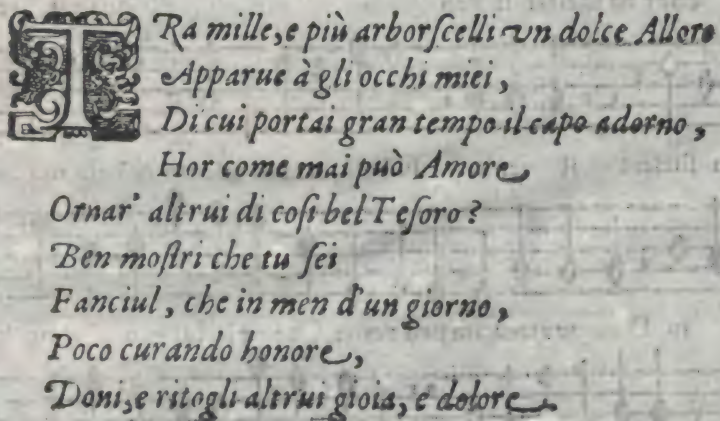 TRa mille, e più arborſcelli vn dolce Alloro
Apparue à gli occhi miei,
Di cui portai gran tempo il capo adorno,
Hor come mai può Amore
Ornar' altrui di coſi bel Teſoro?
Ben moſtri che tu ſei
Fanciul, che in men d'un giorno,
Poco curando honore,
Doni, e ritogli altrui gioia, e dolore.